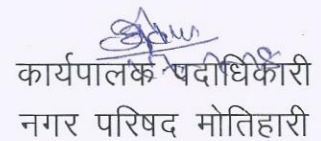 कार्यपालक पदाधिकारी
नगर परिषद मोतिहारी